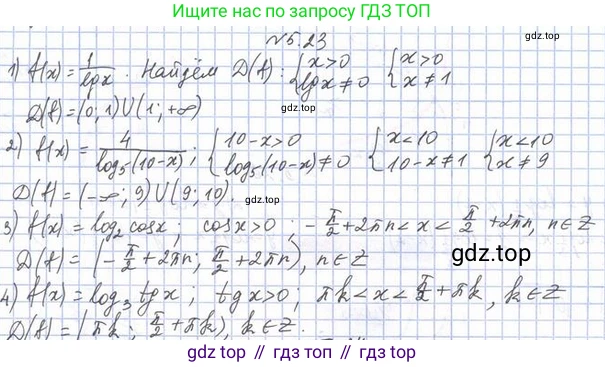 Ищите нас по запросу ГДЗ ТОП
№5.23
1) f(x) = 1/lgx. Найдём D(f): {x>0 {x>0
{lgx≠0 {x≠1
D(f)=(0;1)∪(1;+∞)
2) f(x) = 4/log₅(10-x); {10-x>0 {x<10 {x<10
{log₅(10-x)≠0 {10-x≠1 {x≠9
D(f)=(-∞;9)∪(9;10).
gdz.top
3) f(x)=log₂cosx; cosx>0; -π/2+2πn<x<π/2+2πn, n∈Z
D(f)=(-π/2+2πn; π/2+2πn), n∈Z
gdz.top
4) f(x)=log₃tgx; tgx>0; πk<x<π/2+πk, k∈Z
D(f)=(πk; π/2+πk), k∈Z.
gdz top // гдз топ // gdz.top